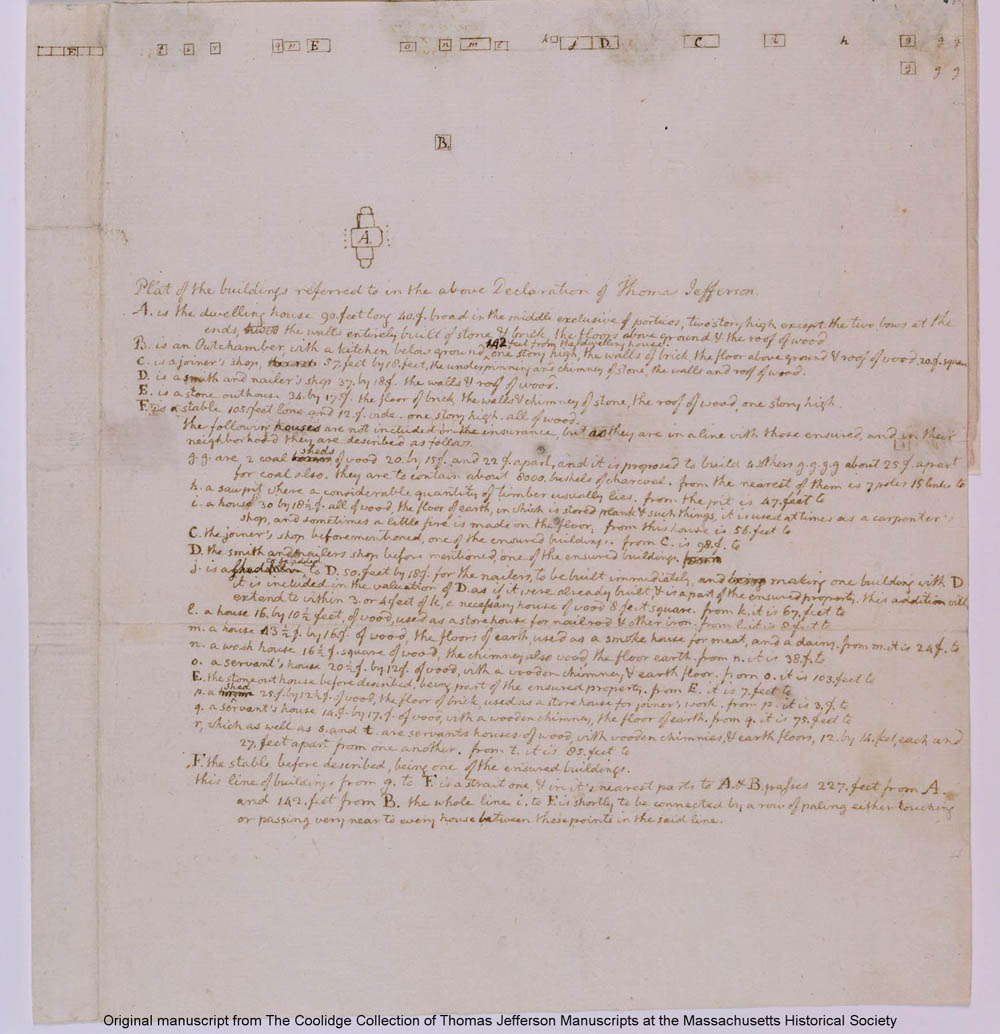 F t s r q p E o n m l k j D C i h g g g
g g g
B.
A.
Plat of the buildings referred to in the above Declaration of Thomas Jefferson.
A. is the dwelling house 90. feet long 40. f. broad in the middle exclusive of porticos, two story high except the two bows at the
ends, the walls entirely built of stone & brick, the floors above ground & the roof of wood.
B. is an Outchamber, with a kitchen below ground, 142 feet from the dwelling house. one story high, the walls of brick, the floor above ground & roof of wood. 20. f. square
C. is a joiner's shop, 57. feet by 18. feet, the underpinning and chimney of stone, the walls and roof of wood.
D. is a smith and nailer's shop 37. by 18. f. the walls & roof of wood.
E. is a stone outhouse 34. by 17. f. the floor of brick, the walls & chimney of stone, the roof of wood, one story high.
F. is a stable 105. feet long and 12. f. wide. one story high. all of wood.
the following houses are not included in the insurance, but as they are in a line with those ensured, and in their
neighborhood they are described as follows.
g. g. are 2 coal sheds of wood 20. by 15. f. and 22 f. apart, and it is proposed to build 4. others g. g. g. g about 25. f. apart
for coal also. they are to contain about 8000. bushels of charcoal. from the nearest of them is 7 poles 15 links to
h. a sawpit where a considerable quantity of timber usually lies. from the pit is 47. feet to
i. a house 30 by 18½ f. all of wood, the floor of earth, in which is stored plank & such things, it is used at times as a carpenter's
shop, and sometimes a little fire is made on the floor. from this house is 56. feet to
C. the joiner's shop beforementioned, one of the ensured buildings. from C. is 98. f. to
D. the smith and nailers shop before mentioned, one of the ensured buildings.
j. is a shed to be added to D. 50. feet by 18. f. for the nailers, to be built immediately, and making one building with D
it is included in the valuation of D. as if it were already built, & is a part of the ensured property. this addition will
extend to within 3. or 4 feet of k, a necessary house of wood 8 feet square. from k. it is 67. feet to
l. a house 16. by 10½ feet, of wood, used as a storehouse for nailrod & other iron. from l. it is 8 feet to
m. a house 43½ f. by 16. f. of wood, the floors of earth, used as a smoke house for meat, and a dairy. from m. it is 24 f. to
n. a wash house 16½ f. square of wood, the chimney also wood, the floor earth. from n. it is 38. f. to
o. a servant's house 20½ f. by 12 f. of wood, with a wooden chimney, & earth floor. from o. it is 103. feet to
E. the stone out house before described, being part of the ensured property. from E. it is 7. feet to
p. a shed 25. f. by 12½ f. of wood, the floor of brick, used as a store house for joiner's work. from p. it is 3. f. to
q. a servant's house 14. f. by 17. f. of wood, with a wooden chimney, the floor of earth. from q. it is 75. feet to
r, which as well as s. and t. are servants houses of wood, with wooden chimnies, & earth floors, 12. by 14. feet, each and
27. feet apart from one another. from t. it is 85. feet to
F. the stable before described, being one of the ensured buildings.
this line of buildings from g. to F. is a strait one, & in it's nearest parts to A. & B. passes 227. feet from A.
and 142. feet from B. the whole line i. to F. is shortly to be connected by a row of paling either touching
or passing very near to every house between these points in the said line.
Original manuscript from The Coolidge Collection of Thomas Jefferson Manuscripts at the Massachusetts Historical Society